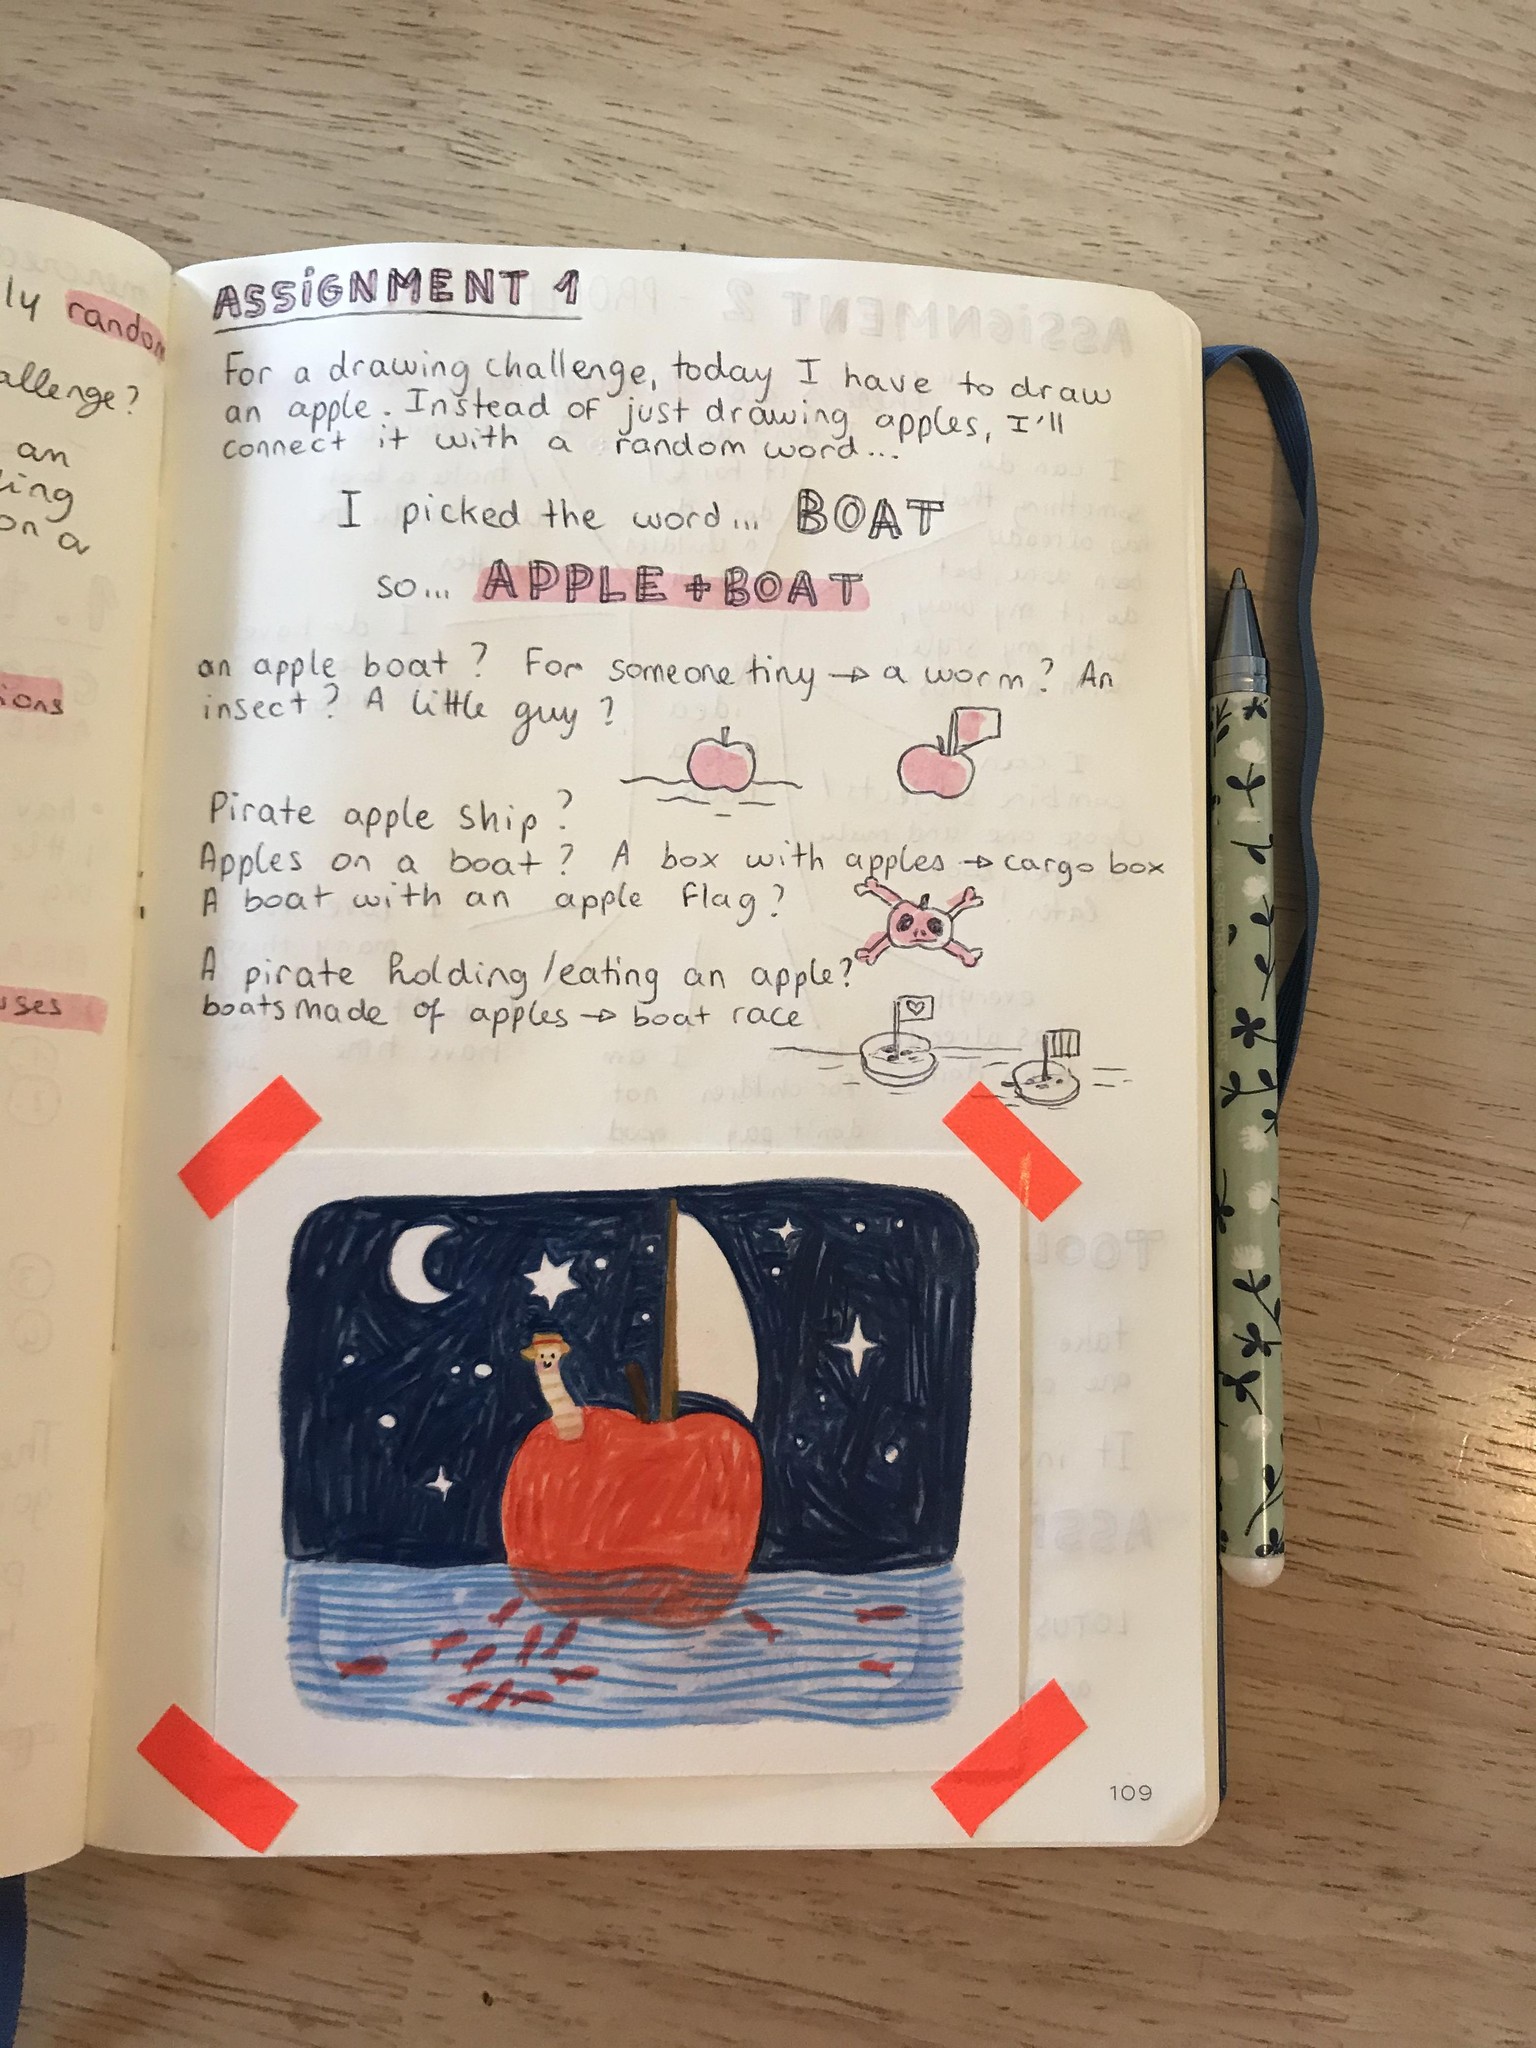 ly random
allenge?
an
on a
ions
uses
ASSiGNMENT 1
For a drawing challenge, today I have to draw
an apple. Instead of just drawing apples, I'll
connect it with a random word...
I picked the word... BOAT
so... APPLE + BOAT
an apple boat? For someone tiny → a worm? An
insect? A little guy?
Pirate apple ship?
Apples on a boat? A box with apples → cargo box
A boat with an apple flag?
A pirate holding/eating an apple?
boats made of apples → boat race
109